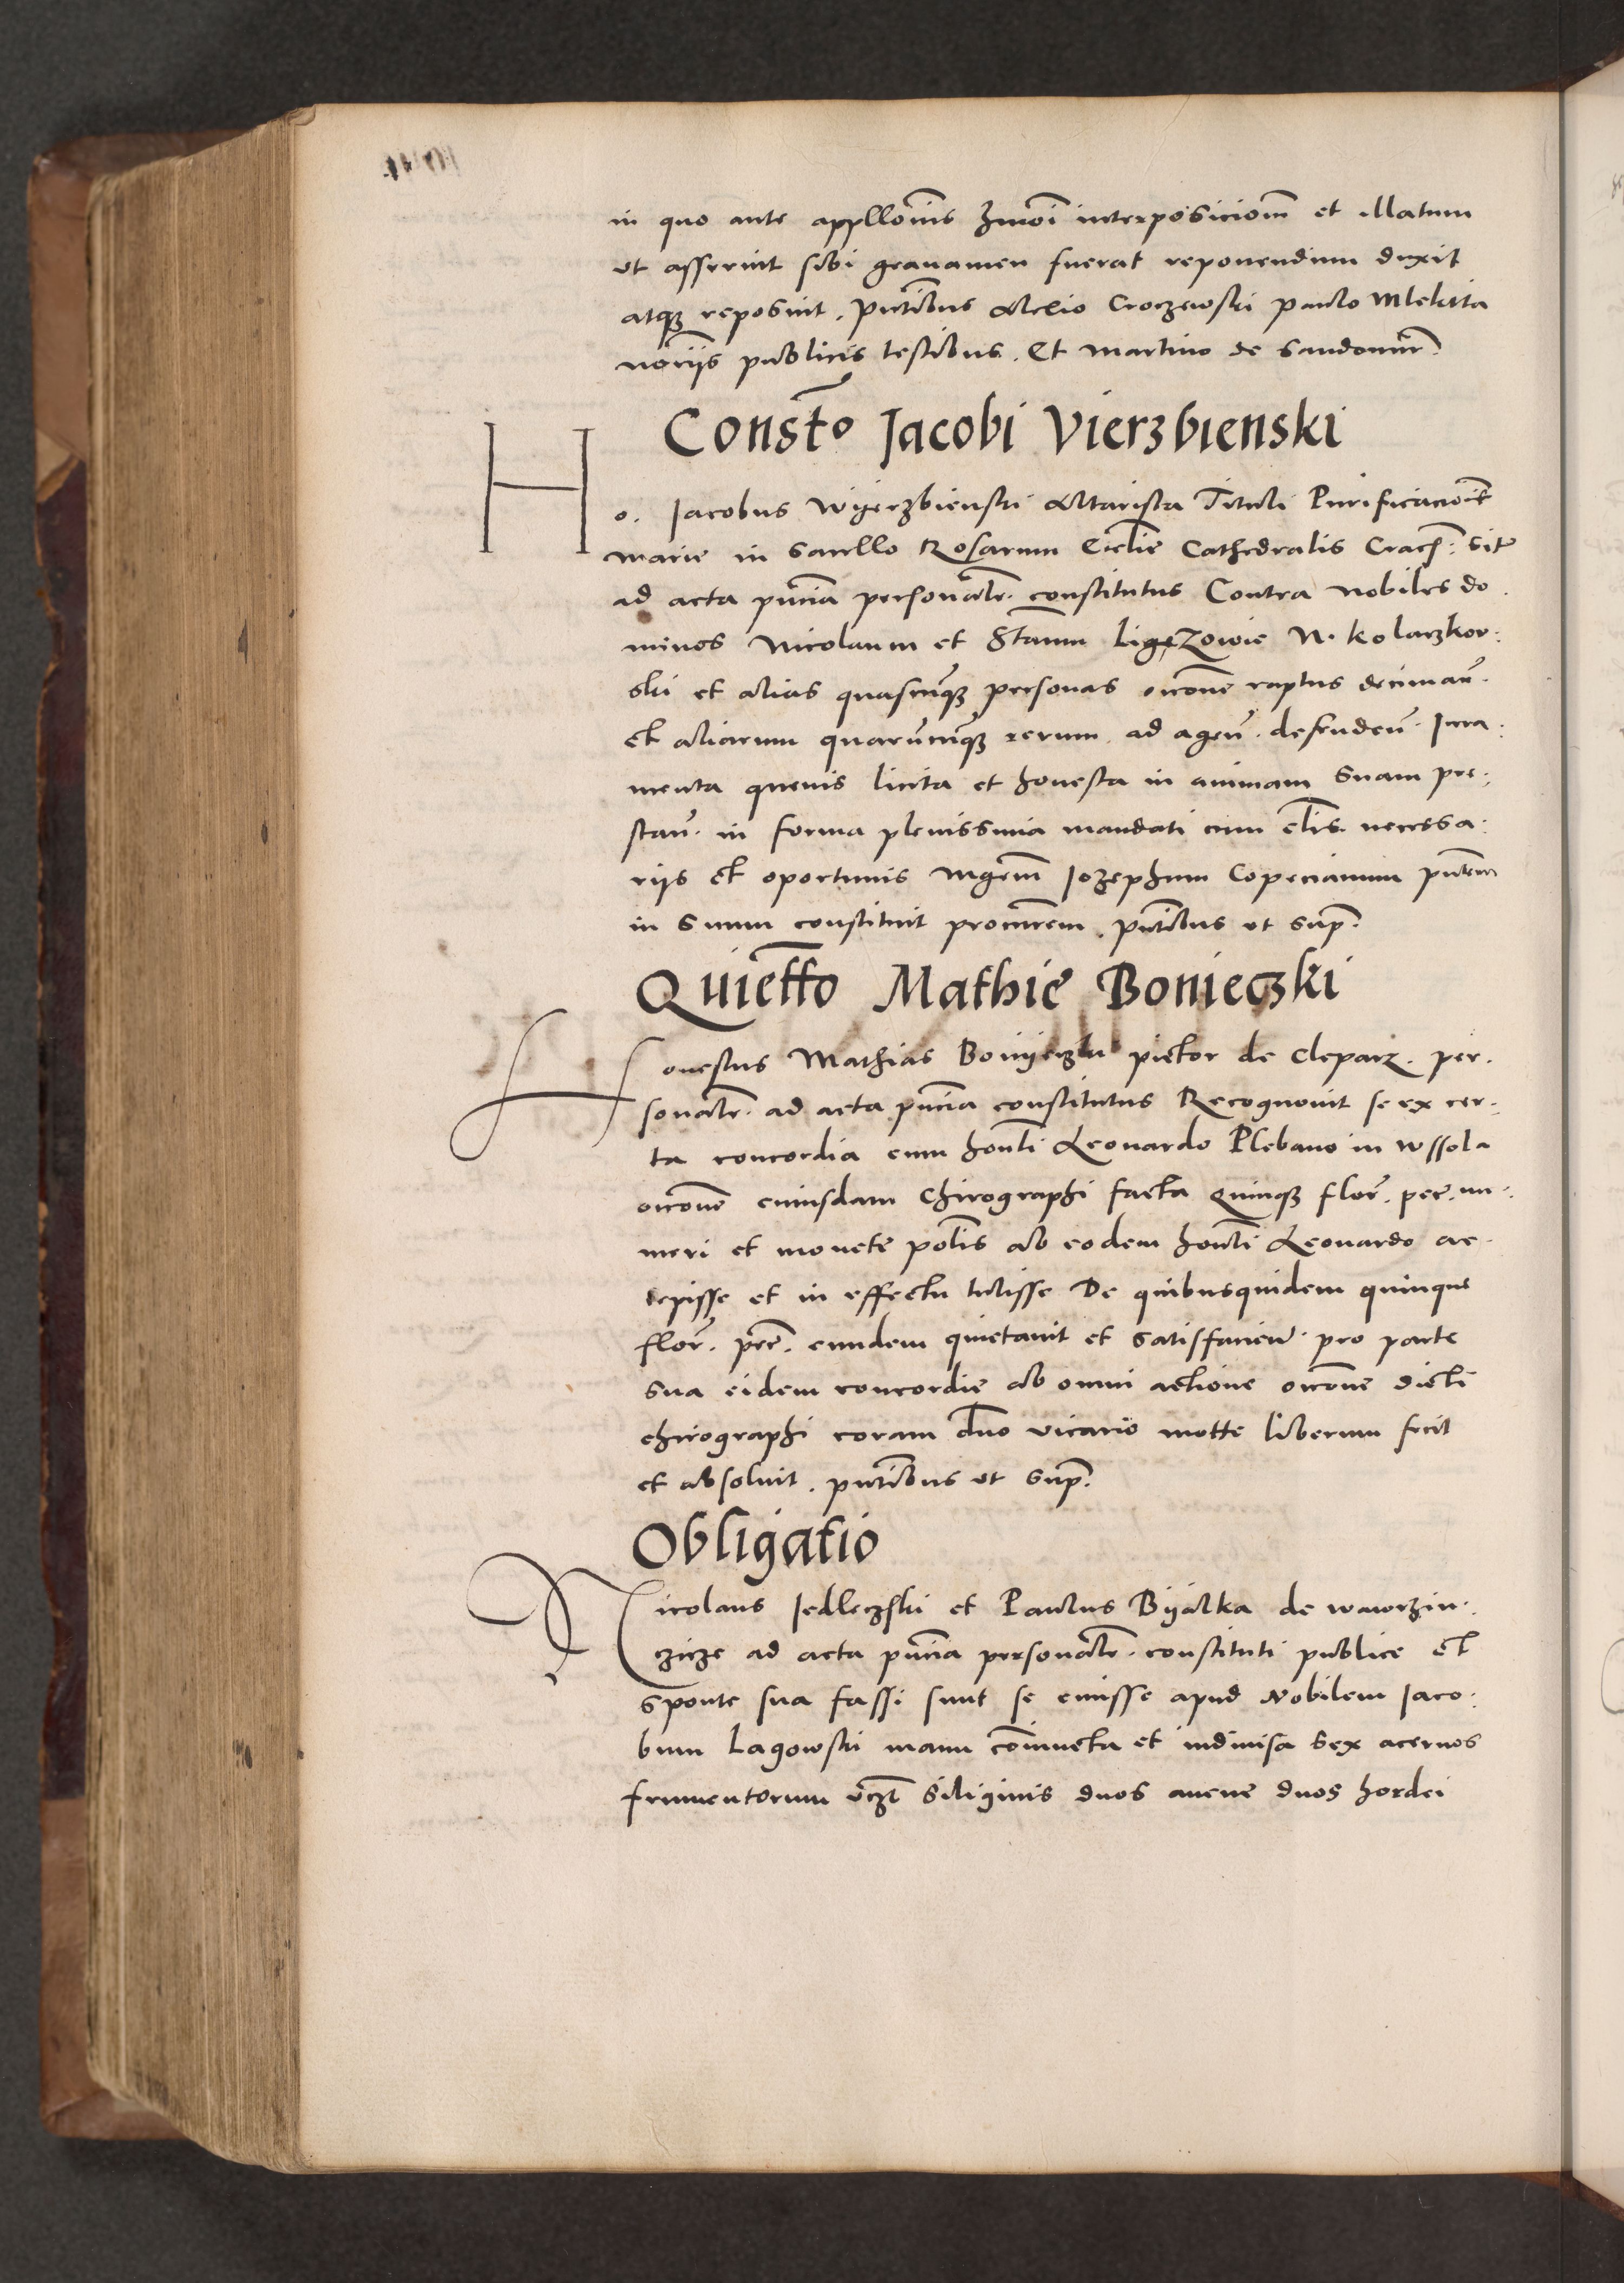 in quo ante appllonis hmoi interposicionem et illatum
ut asseruit sibi grauamen fuerat reponendum duxit
atque reposuit. pntibus Alexio Croczewski paulo Mlekita
noriis publicis testibus. Et Martino de Sandomir
Constto Jacobi Vierzbienski
Ho. Jacobus Wyerzbienski Altarista Tituli Purificacionis
marie in sacello Rosarum Ecclie Cathedralis Crac: site
ad acta pncia personalr constitutus Contra nobiles do
minos Nicolaum et Stanm Ligęzowie N. kolaczkow:
ski et alias quascunque personas occone raptus decimarum
et aliarum quarumcunque rerum ad agen. defenden. Jura:
menta quevis licita et honesta in animam suam pre:
stan. in forma plenissima mandati cum clis necessa:
riis et oportunis Mgrm Jozephum Copecianum pntem
in suum constituit procurem. pntibus ut sup.
Quietto Mathie Bonieczki
Honestus Mathias Boniyeczki pictor de Cleparz. per.
sonalr. ad acta pncia constitutus Recognouit se ex cer:
ta concordia cum honli Leonardo Plebano in Wssola
occone cuiusdam Chirographi facta quinque flor. pec. nu:
meri et monete polis ab eodem honli Leonardo ac
cepisse et in effectu tulisse De quibusquidem quinque
flor. prr. eundem quietauit et satisfacien. pro parte
sua eidem concordie ab omni actione occone dicti
chirographi coram duo vicario motte liberum fecit
et absoluit. pntibus ut sup.
Obligatio
Nicolaus Jedleczski et Paulus Byalka de wawrzin:
czicze ad acta pncia personalr. constituti publice et
sponte sua fassi sunt se emisse apud Nobilem Jaco:
bum Lagowski manu coniuncta et indiuisa sex aceruos
frumentorum vczt siliginis duos auene duos hordei